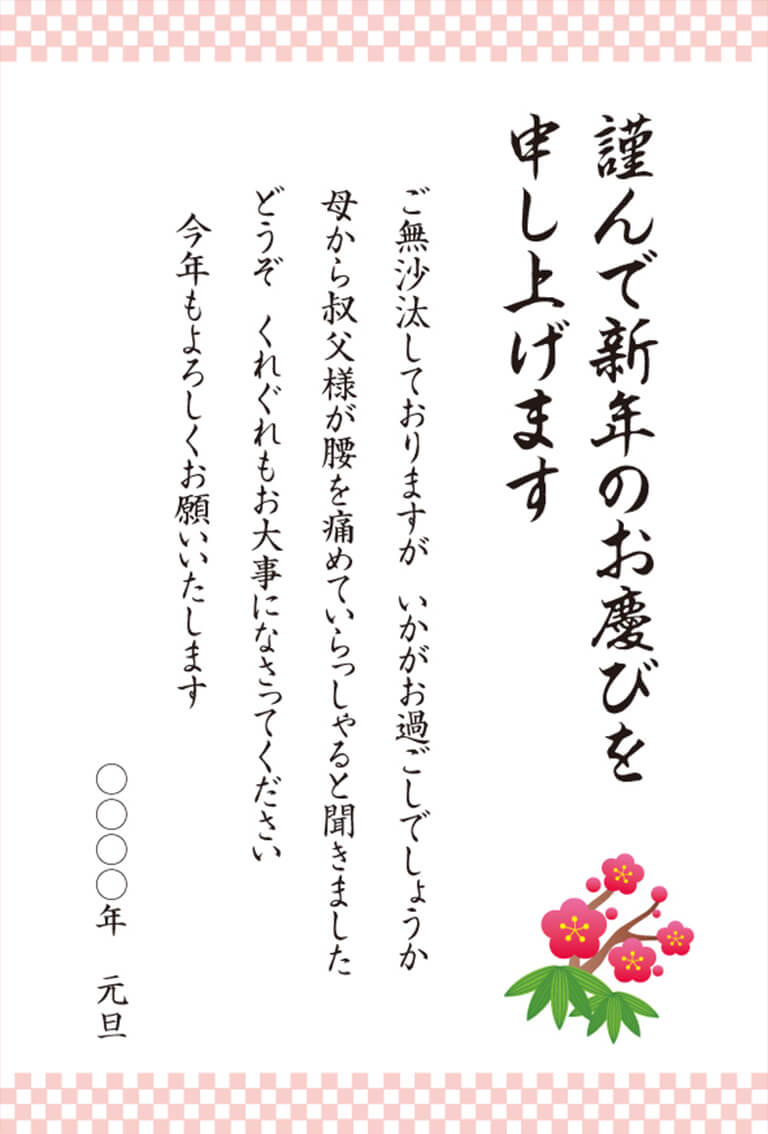 謹んで新年のお慶びを
申し上げます
ご無沙汰しておりますが　いかがお過ごしでしょうか
母から叔父様が腰を痛めていらっしゃると聞きました
どうぞ　くれぐれもお大事になさってください
今年もよろしくお願いいたします
〇〇〇〇年　元旦